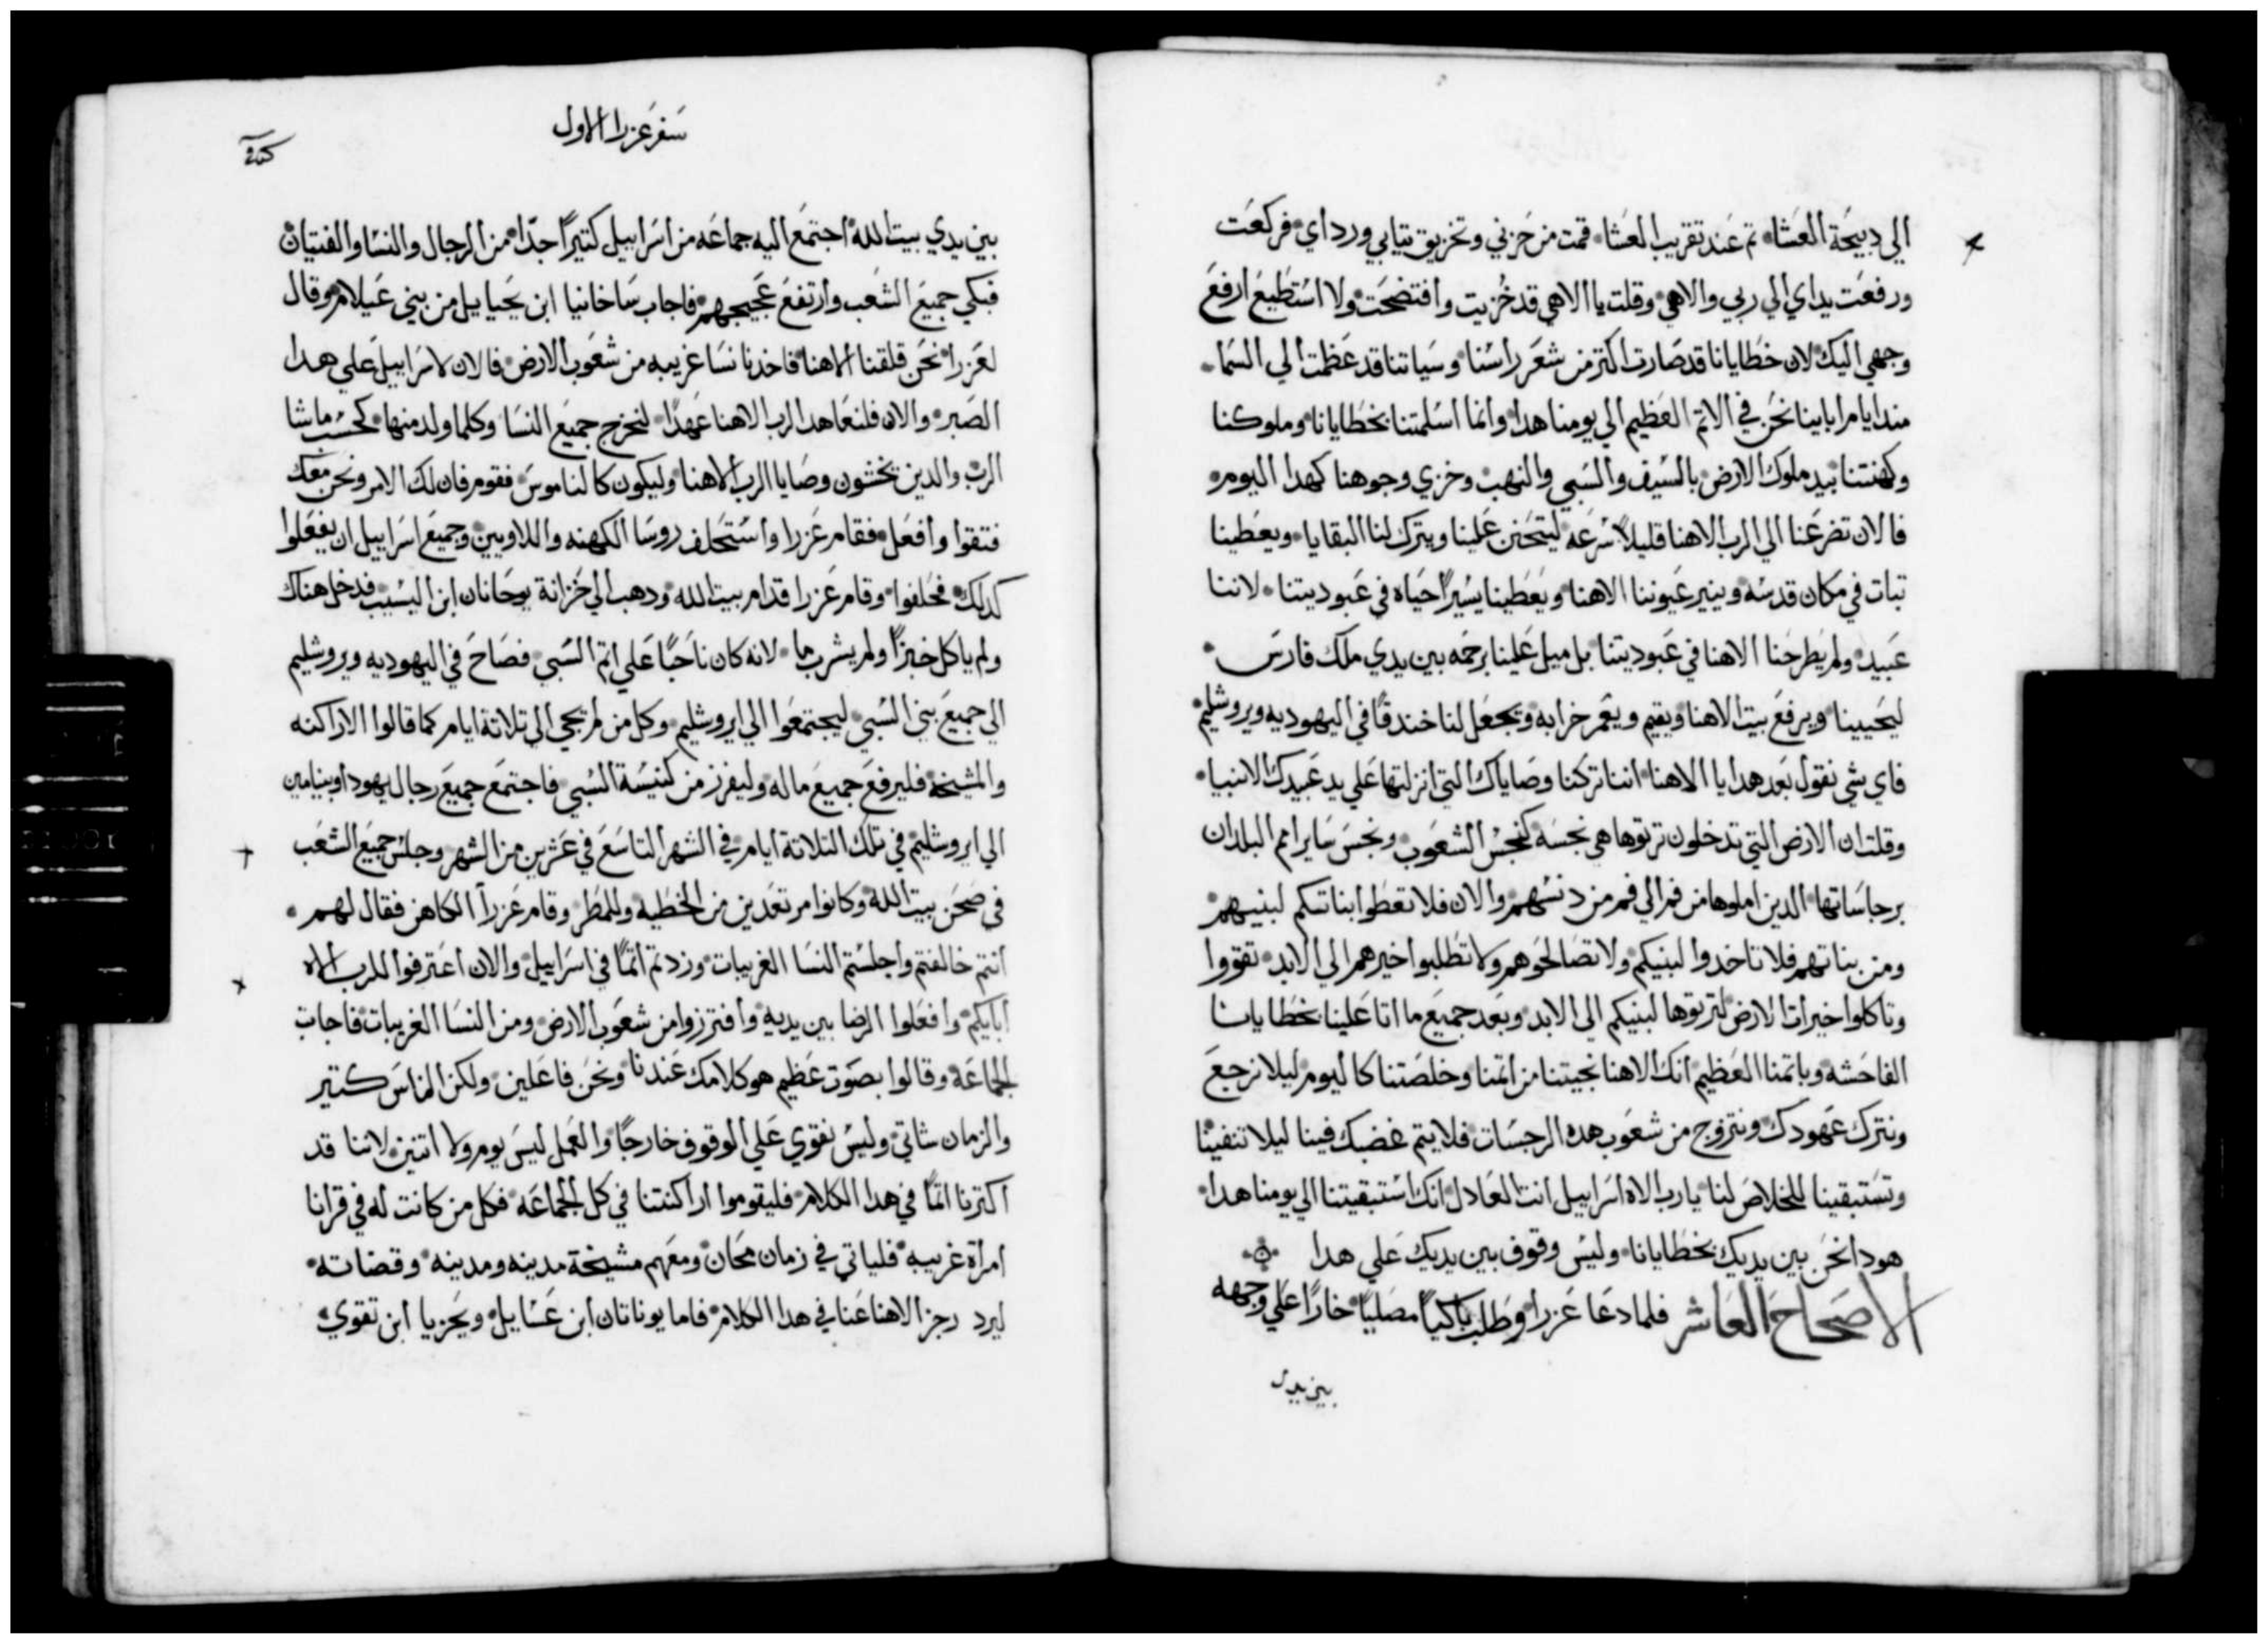 الي دبيحة العشا۰ تم عند تقريب العشا۰ قمت من حزني وتخزيق تيابي ورداي۰ فركعت
ورفعت يداي الي ربي والاهي۰ وقلت يا الاهي قد خُزيت وافتضحت۰ ولا استطيع ارفع
وجهي اليك۰ لان خطايانا قد صارت اكتر من شعر راسنا۰ وسياتنا قد عظمت الي السما۰
مند ايام ابايينا نحن في الاتم العظيم الي يومنا هدا۰ وانما اسلمتنا بخطايانا۰ وملوكنا
وكهنتنا۰ بيد ملوك الارض۰ بالسيف والسبي والنهب۰ وخزي وجوهنا كهدا اليوم۰
فالان تضرعنا الي الرب الاهنا قليلاً سرعه۰ ليتحنن علينا ويترك لنا البقايا۰ ويعطينا
تبات في مكان قدسه۰ وينير عيوننا الاهنا۰ ويعطينا يسيراً حياه في عبوديتنا۰ لاننا
عبيد۰ ولم يطرحنا الاهنا في عبوديتنا۰ بل ميل علينا برحمه بين يدي ملك فارس۰
ليحيينا۰ ويرفع بيت الاهنا۰ ويقيم ويعمر خرابه۰ ويجعل لنا خندقًا في اليهوديه ويروشليم۰
فاي شي نقول بعد هدا يا الاهنا۰ اننا تركنا وصاياك التي انزلتها علي يد عبيدك الانبيا۰
وقلت ان الارض التي تدخلون ترتوها هي نجسه كنجس الشعوب۰ ونجس ساير امم البلدان
برجاساتها۰ الدين املوها من فم الي فم من دنسهم۰ والان فلا تعطوا بناتكم لبنيهم۰
ومن بناتهم فلا تاخدوا لبنيكم۰ ولا تصالحوهم ولا تطلبوا خيرهم الي الابد۰ تقووا
وتاكلوا خيرات الارض۰ لترتوها لبنيكم الي الابد۰ وبعد جميع ما اتا علينا بخطايانا
الفاحشه۰ وباتمنا العظيم۰ انك الاهنا نجيتنا من اتمنا وخلصتنا كاليوم۰ ليلا نرجع
ونترك عهودك۰ ونتزوج من شعوب هده الرجسات۰ فلا يتم غضبك فينا ليلا تنفينا
وتستبقينا للخلاص لنا۰ يارب الاه اسراييل انت العادل۰ انك استبقيتنا الي يومنا هدا۰
هودا نحن بين يديك بخطايانا۰ وليس وقوف بين يديك علي هدا
الاصحاح العاشر فلما دعا عزرا۰ وطلب باكياً مصلياً خاراً علي وجهه
بين يدي
سفر عزرا الاول
بين يدي بيت الله۰ اجتمع اليه جماعه من اسراييل كتيراً جدّا۰ من الرجال والنسا والفتيان۰
فبكي جميع الشعب وارتفع عجيجهم۰ فاجاب ساخانيا ابن يحيا ييل من بيني عيلام۰ وقال
لعزرا۰ نحن قلقنا الاهنا۰ فاخدنا نسا غريبه من شعوب الارض۰ فالان لاسراييل علي هدا
الصبر۰ والان فلنعاهد الرب الاهنا عهدًا۰ لنخرج جميع النسا وكلما ولد منها۰ كحسب ما شا
الرب۰ والدين يخشون وصايا الرب الاهنا۰ وليكون كالناموس۰ فقوم فان لك الامر ونحن معك
فتقوا وافعل۰ فقام عزرا واستحلف روسا الكهنه واللاويين۰ وجميع اسراييل ان يفعلوا
كدلك۰ فحلفوا۰ وقام عزرا قدام بيت الله۰ ودهب الي خزانة يوحانان ابن اليسيب۰ فدخل هناك
ولم ياكل خبزًا ولم يشرب ما۰ لانه كان ناحبًا علي اتم السبي۰ فصاح في اليهوديه ويروشليم
الي جميع بني السبي۰ ليجتمعوا الي ايروشليم۰ وكل من لم يجي الي تلاتة ايام كما قالوا الاراكنه
والمشيخة۰ فليرفع جميع ماله۰ وليفرز من كنيسة السبي۰ فاجتمع جميع رجال يهودا وبنيامين
الي ايروشليم۰ في تلك التلاتة ايام۰ في الشهر التاسع في عشرين من الشهر۰ وجلس جميع الشعب
في صحن بيت الله۰ وكانوا مرتعدين من الخطيه۰ وللمطر۰ وقام عزرا الكاهن فقال لهم۰
انتم خالفتم واجلستم النسا الغريبات۰ وزدتم اتمًا في اسراييل۰ والان اعترفوا للرب الاه
ابايكم۰ وافعلوا الرضا بين يديه۰ وافترزوا من شعوب الارض۰ ومن النسا الغريبات۰ فاجابت
الجماعة۰ وقالوا بصوت عظيم هو كلامك عندنا۰ ونحن فاعلين۰ ولكن الناس كتير
والزمان شاتي۰ وليس نقوي علي الوقوف خارجًا۰ والعمل ليس يوم ولا اتنين۰ لاننا قد
اكترنا اتمًا في هدا الكلام۰ فليقوموا اراكنتنا في كل الجماعه۰ فكل من كانت له في قرانا
امراة غريبه۰ فلياتي في زمان محان۰ ومعهم مشيخة مدينه ومدينه۰ وقضاته۰
ليرد رجز الاهنا عنا في هدا الكلام۰ فاما يوناتان ابن عسايل۰ ويحزيا ابن تقوي۰